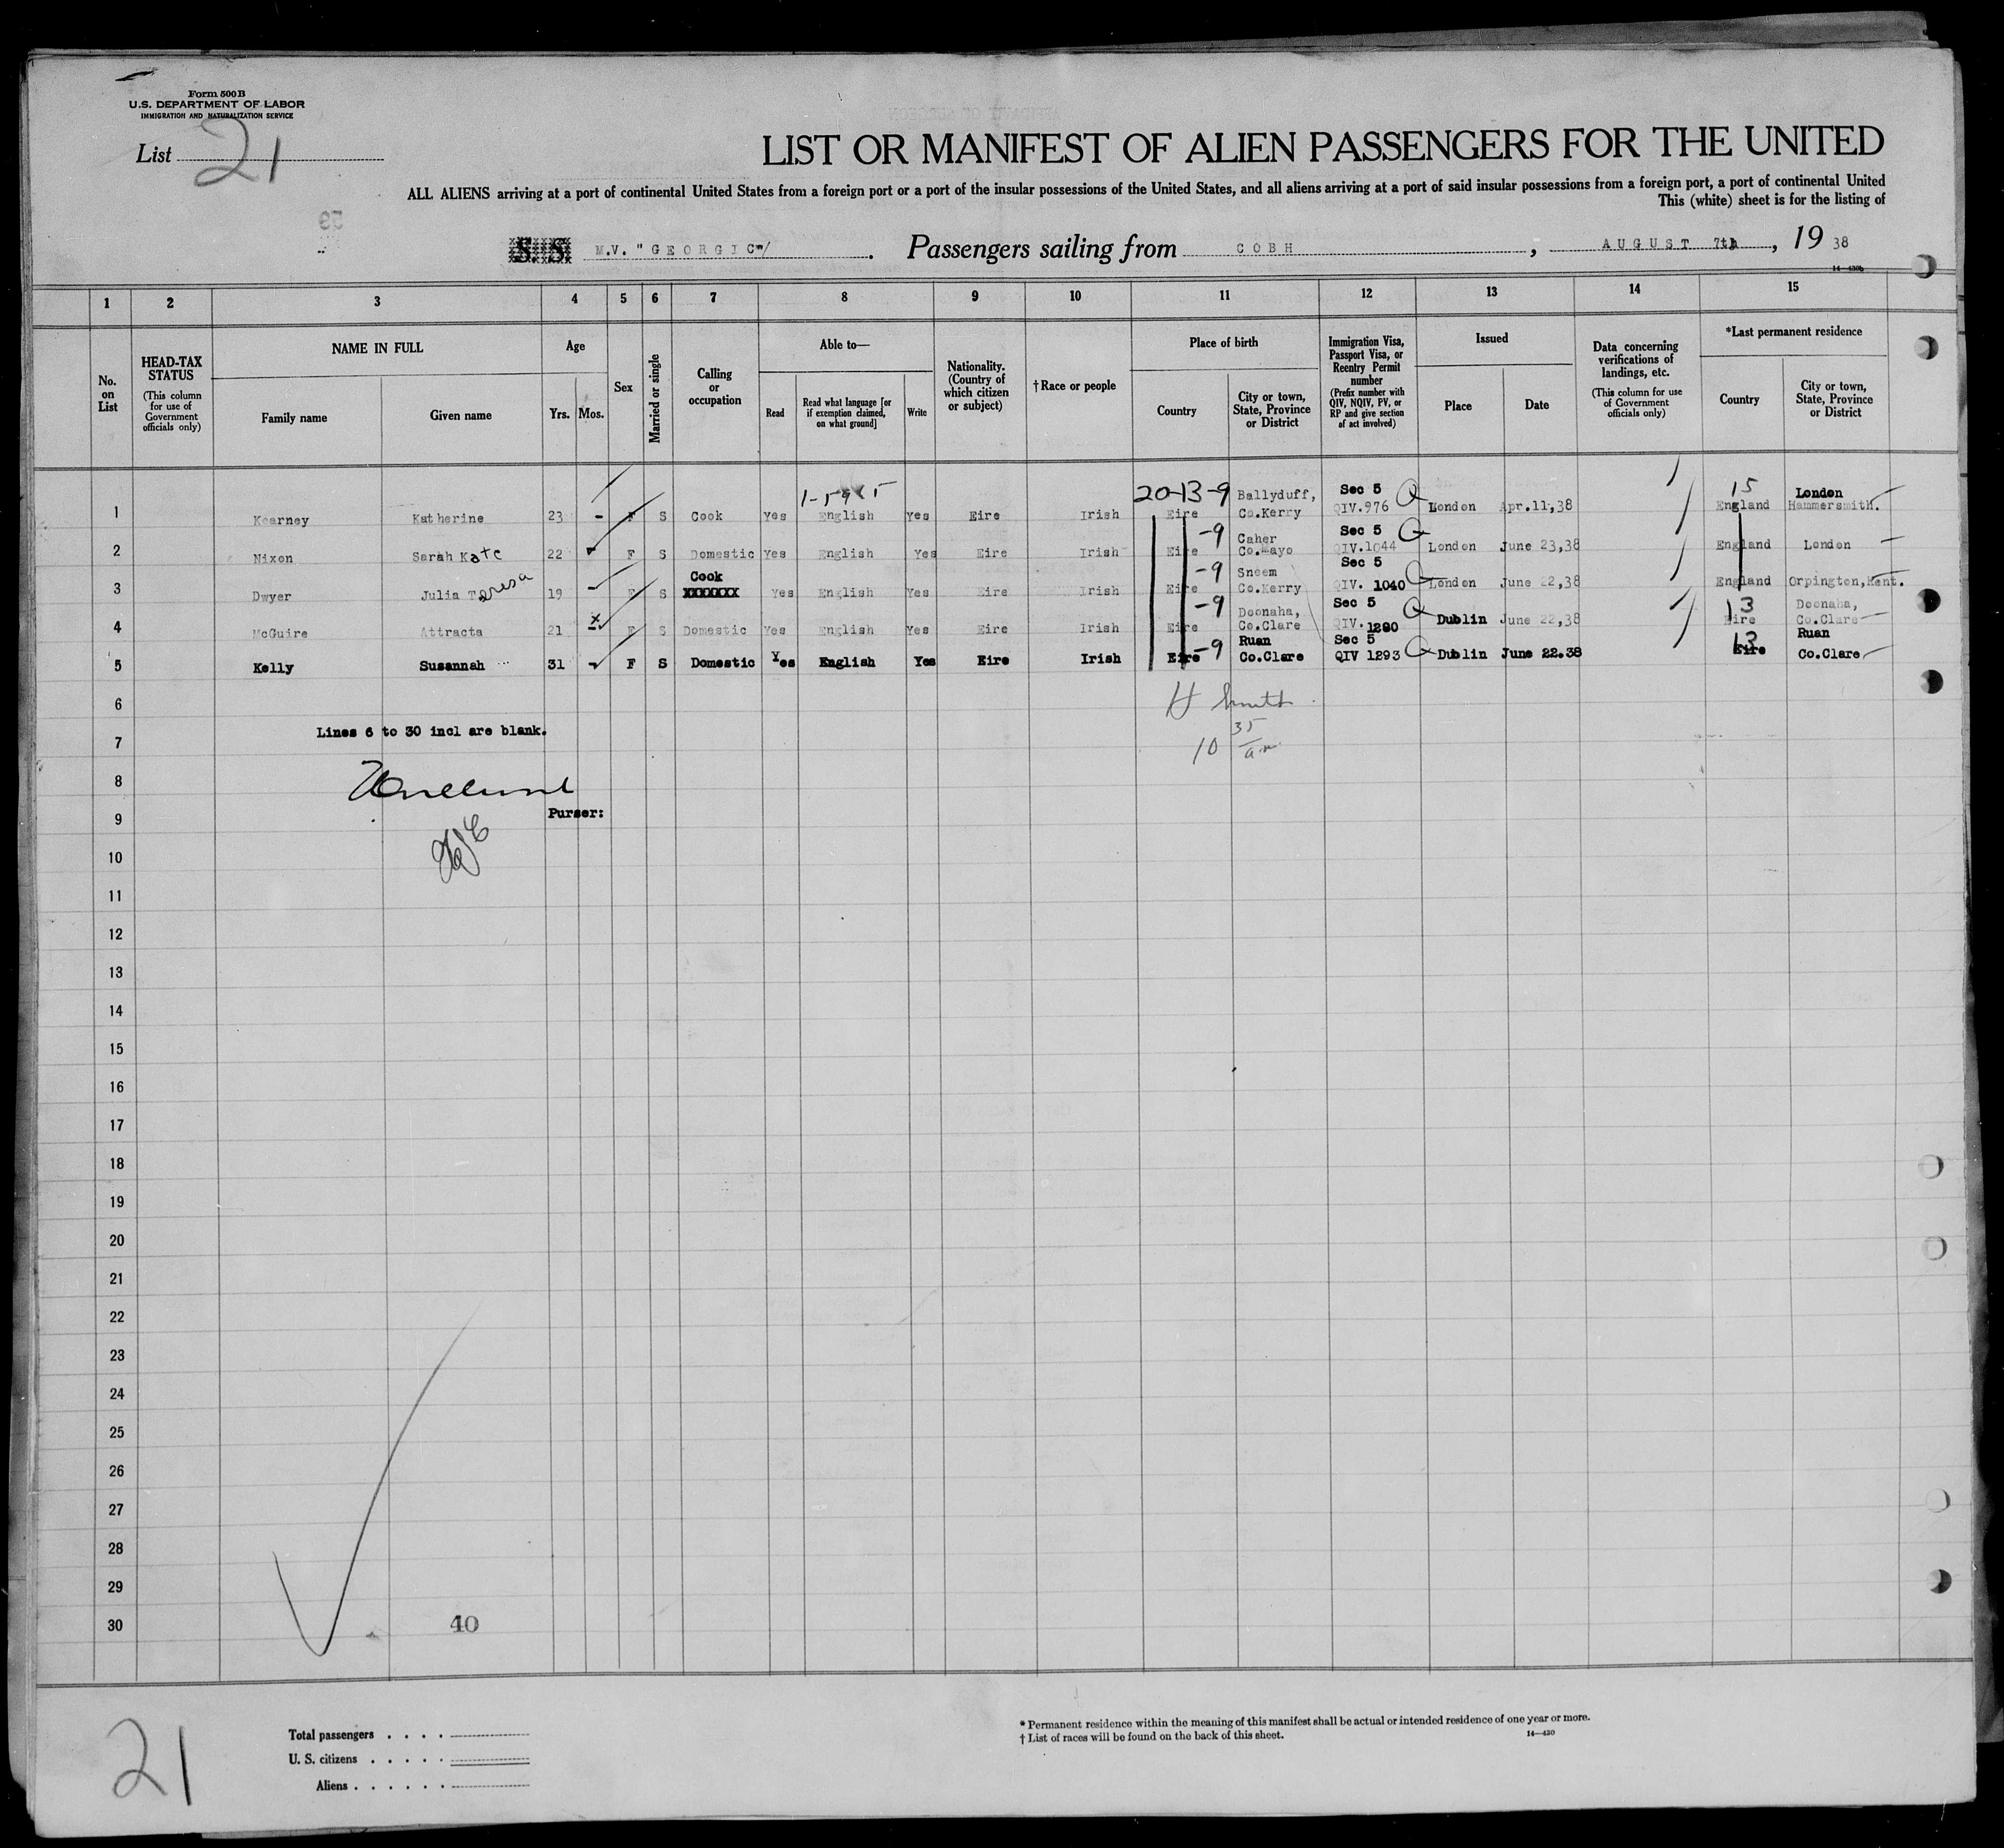 Form 500 B
U.S. DEPARTMENT OF LABOR
IMMIGRATION AND NATURALIZATION SERVICE
List 21
LIST OR MANIFEST OF ALIEN PASSENGERS FOR THE UNITED
ALL ALIENS arriving at a port of continental United States from a foreign port or a port of the insular possessions of the United States, and all aliens arriving at a port of said insular possessions from a foreign port, a port of continental United
This (white) sheet is for the listing of
59
S. S. M.V. "GEORGIC" . Passengers sailing from COBH , AUGUST 7th , 19 38
14—430b
1 2 3 4 5 6 7 8 9 10 11 12 13 14 15
No. on List
HEAD-TAX STATUS (This column for use of Government officials only)
NAME IN FULL
Family name Given name
Age
Yrs. Mos.
Sex
Married or single
Calling or occupation
Able to—
Read Read what language [or if exemption claimed, on what ground] Write
Nationality. (Country of which citizen or subject)
†Race or people
Place of birth
Country City or town, State, Province or District
Immigration Visa, Passport Visa, or Reentry Permit number (Prefix number with QIV, NQIV, PV, or RP and give section of act involved)
Issued
Place Date
Data concerning verifications of landings, etc. (This column for use of Government officials only)
*Last permanent residence
Country City or town, State, Province or District
20-13-9 Ballyduff, Sec 5 15 London
1 Kearney Katherine 23 - F S Cook Yes English Yes Eire Irish Eire Co.Kerry QIV.976 London Apr.11,38 England Hammersmith.
-9 Caher Sec 5
2 Nixon Sarah Kate 22 F S Domestic Yes English Yes Eire Irish Eire Co.Mayo QIV.1044 London June 23,38 England London
Cook -9 Sneem Sec 5
3 Dwyer Julia Teresa 19 F S XXXXXXX Yes English Yes Eire Irish Eire Co.Kerry QIV. 1040 London June 22,38 England Orpington,Kent.
x -9 Doonaha, Sec 5 13 Doonaha,
4 McGuire Attracta 21 - F S Domestic Yes English Yes Eire Irish Eire Co.Clare QIV.1280 Dublin June 22,38 Eire Co.Clare
-9 Ruan Sec 5 13 Ruan
5 Kelly Susannah 31 F S Domestic Yes English Yes Eire Irish Eire Co.Clare QIV 1293 Dublin June 22.38 Eire Co.Clare
6 H Smith
Lines 6 to 30 incl are blank.
7 10 35 am
8
Purser:
9
10
11
12
13
14
15
16
17
18
19
20
21
22
23
24
25
26
27
28
29
30 40
21
Total passengers . . . .
U. S. citizens . . . . .
Aliens . . . . . .
* Permanent residence within the meaning of this manifest shall be actual or intended residence of one year or more.
† List of races will be found on the back of this sheet. 14—430